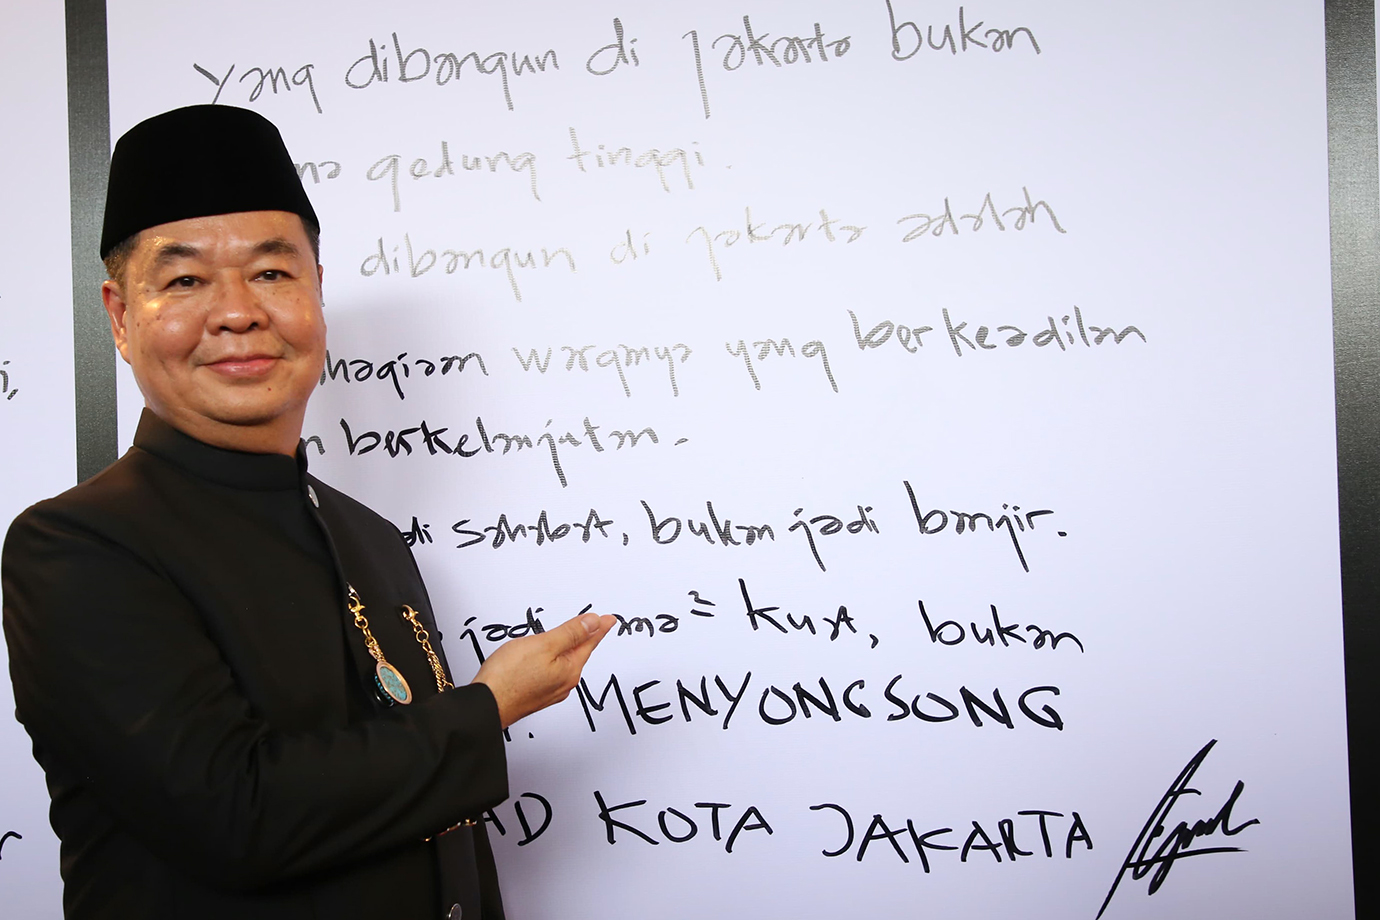 yang dibangun di Jakarta bukan
gedung tinggi.
dibangun di Jakarta adalah
warganya yang berkeadilan
berkelanjutan.
sahabat, bukan jadi banjir.
jadi kuat, bukan
MENYONGSONG
KOTA JAKARTA